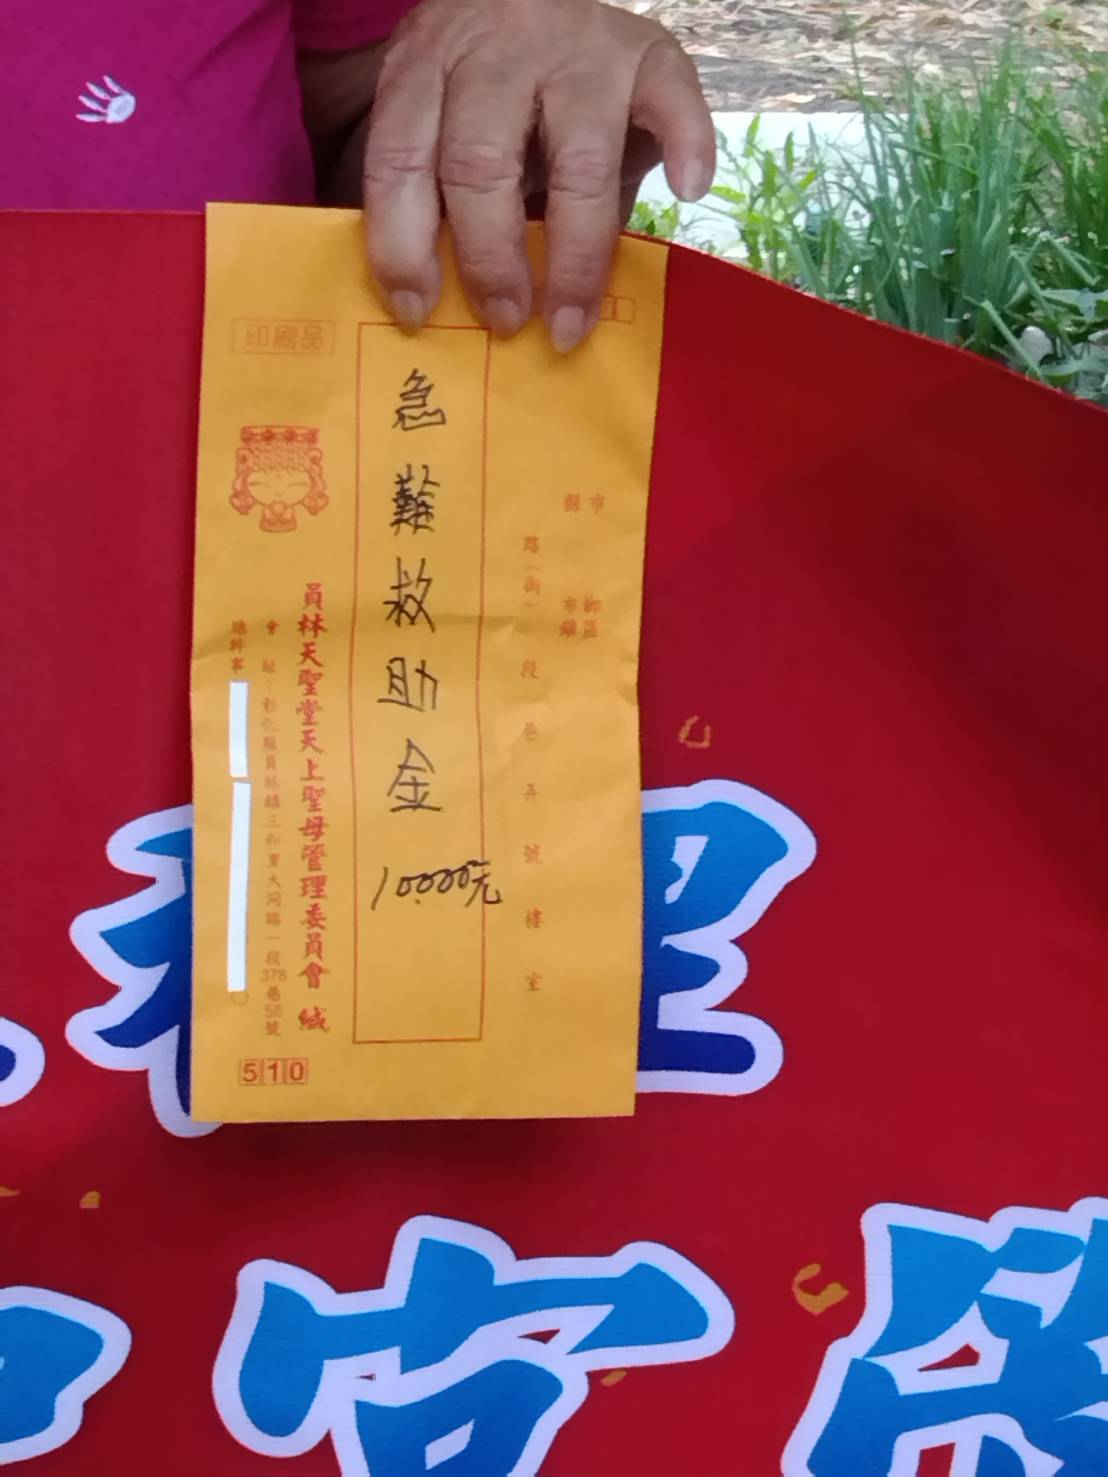 印刷品
縣市
鄉區
市鎮
路(街)
段
巷
弄
號
樓
室
急難救助金
10,000元
員林天聖堂天上聖母管理委員會 緘
會址:彰化縣員林鎮三和里大同路一段378巷56號
總幹事
510
宮